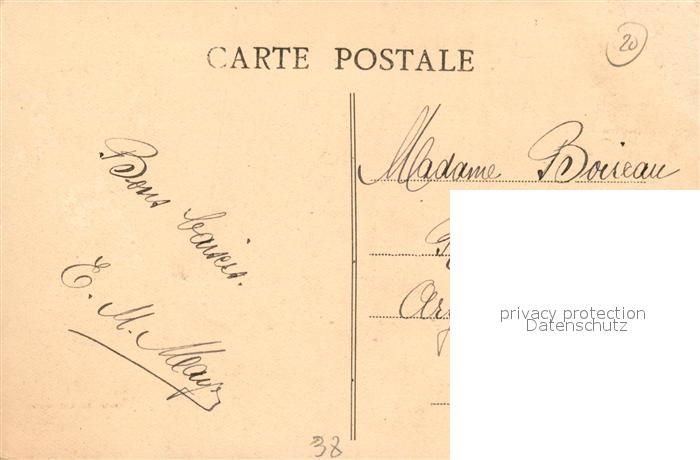 CARTE POSTALE
20
Bons baisers.
E. M.
Madame Boiseau
privacy protection
Datenschutz
38